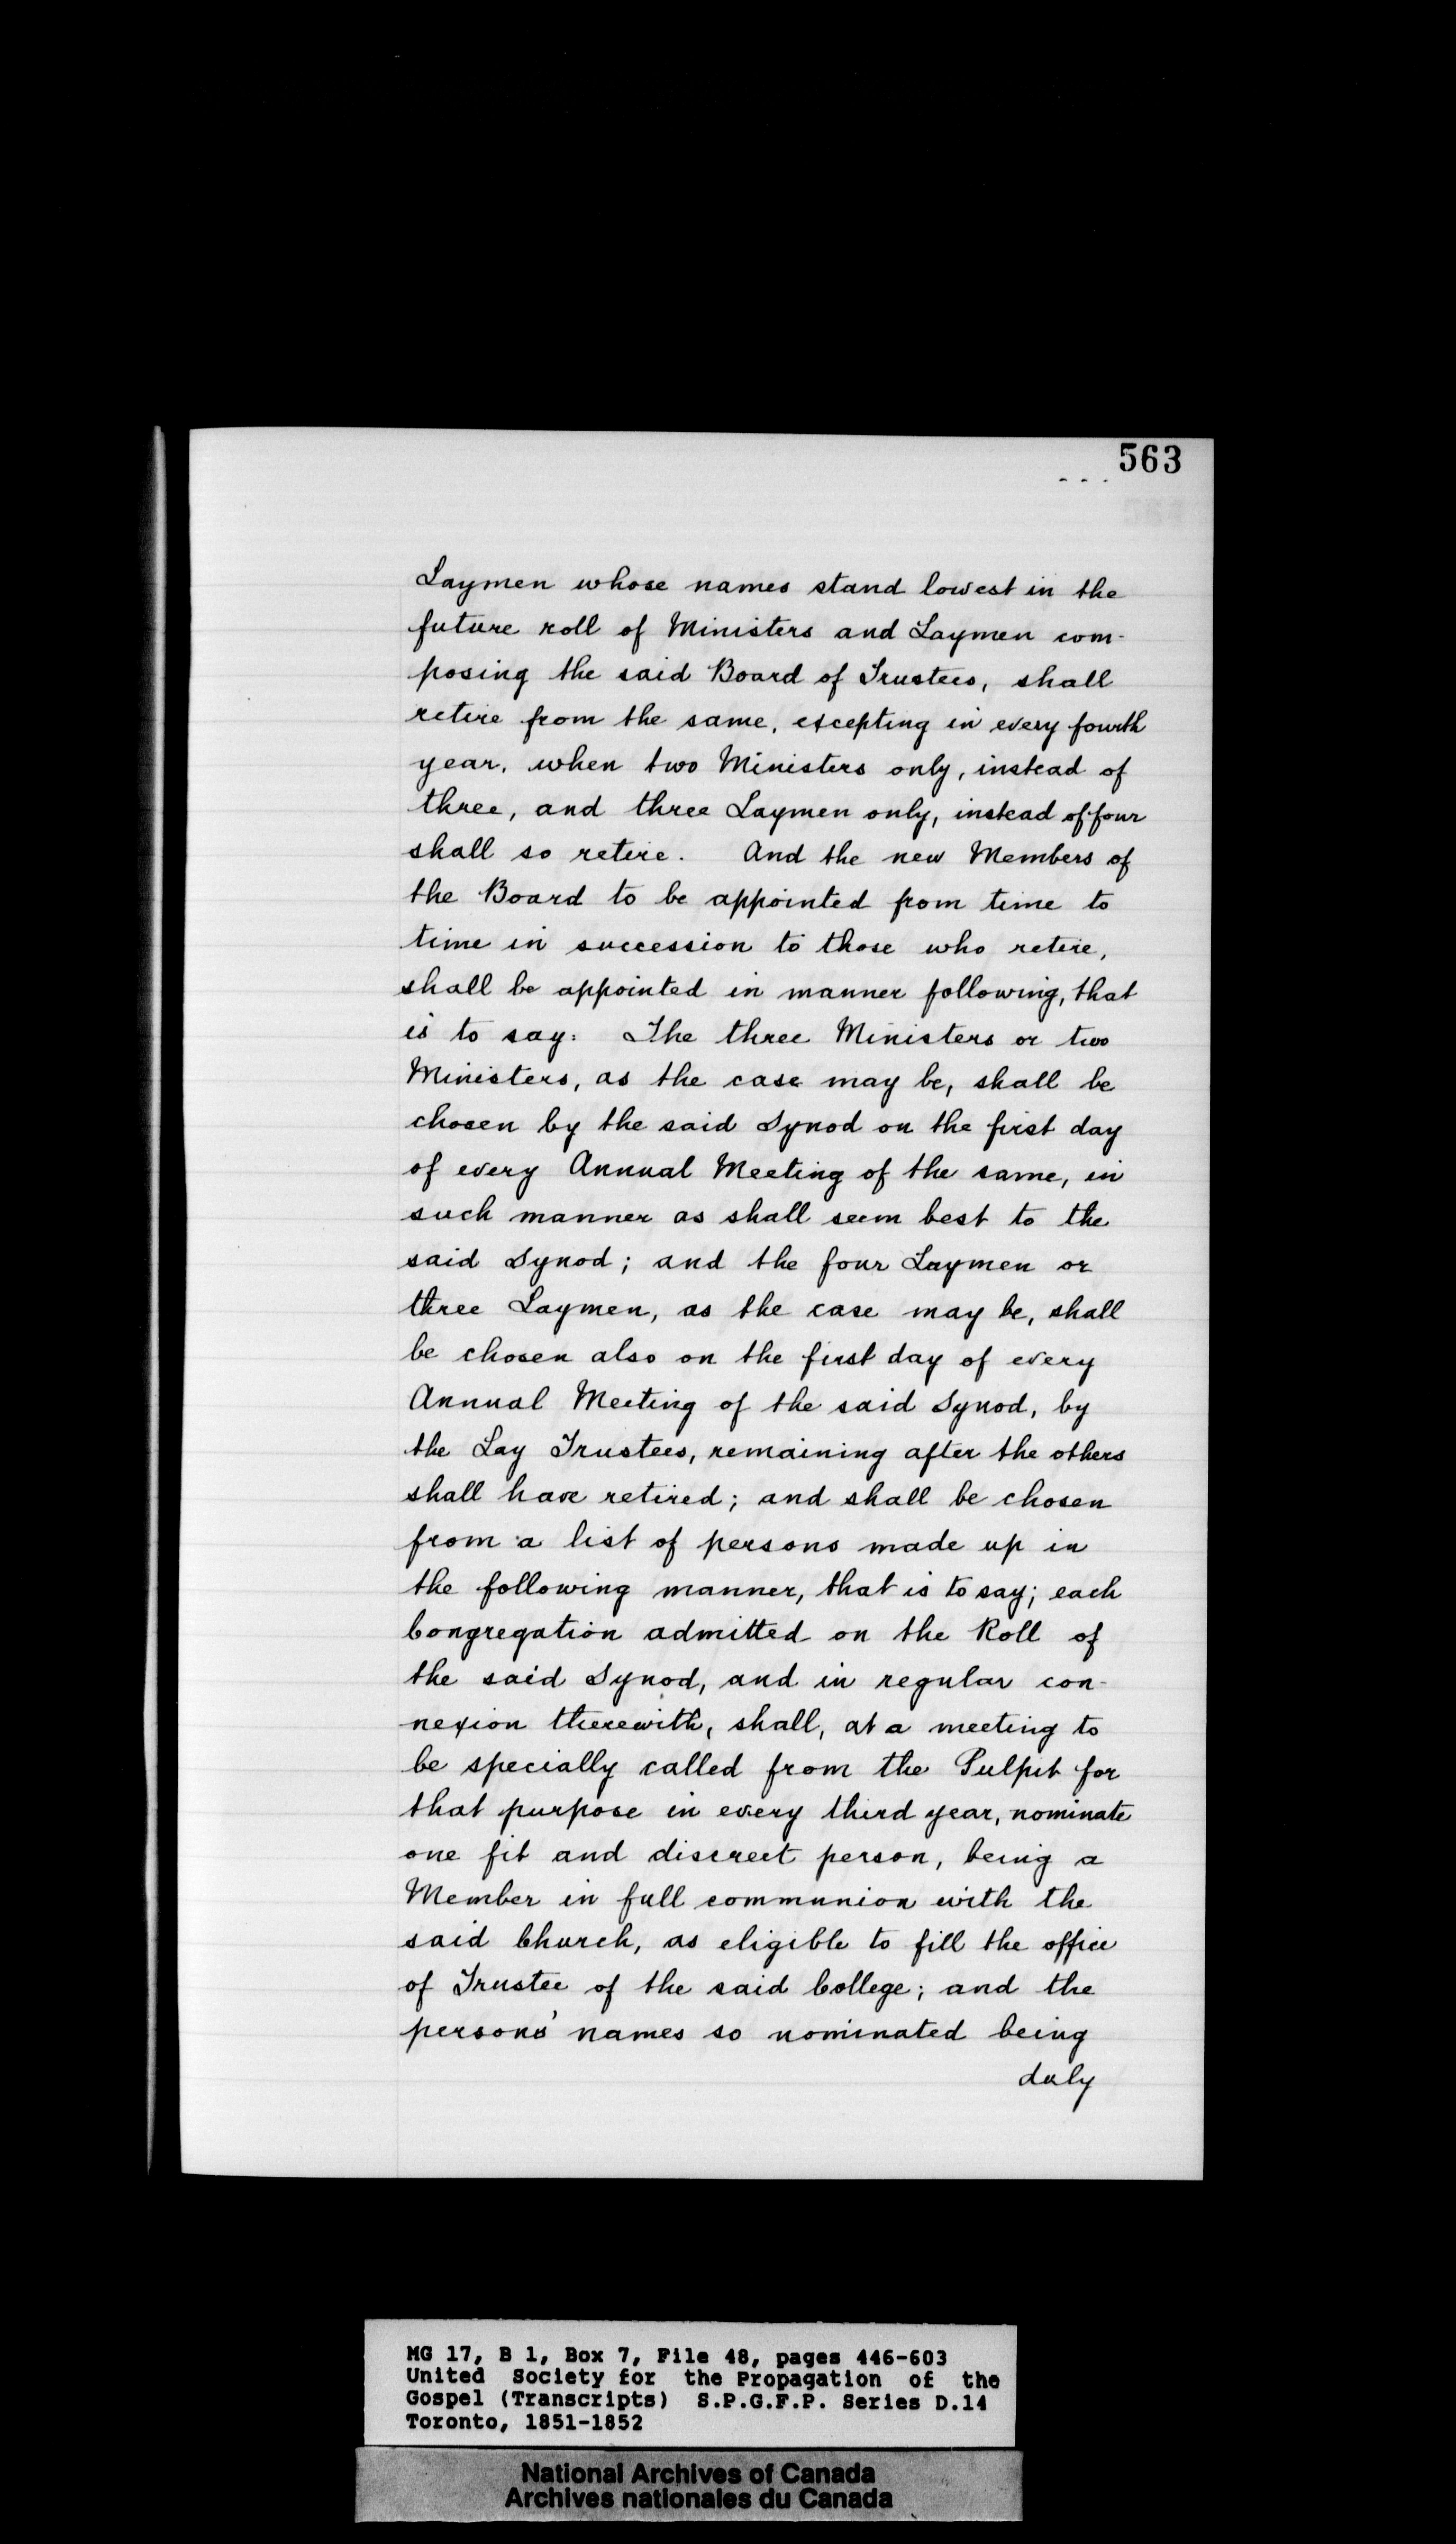 563
Laymen whose names stand lowest in the
future roll of Ministers and Laymen com-
posing the said Board of Trustees, shall
retire from the same, excepting in every fourth
year, when two Ministers only, instead of
three, and three Laymen only, instead of four
shall so retire. And the new Members of
the Board to be appointed from time to
time in succession to those who retire,
shall be appointed in manner following, that
is to say: The three Ministers or two
Ministers, as the case may be, shall be
chosen by the said Synod on the first day
of every Annual Meeting of the same, in
such manner as shall seem best to the
said Synod; and the four Laymen or
three Laymen, as the case may be, shall
be chosen also on the first day of every
Annual Meeting of the said Synod, by
the Lay Trustees, remaining after the others
shall have retired; and shall be chosen
from a list of persons made up in
the following manner, that is to say; each
Congregation admitted on the Roll of
the said Synod, and in regular con-
nexion therewith, shall, at a meeting to
be specially called from the Pulpit for
that purpose in every third year, nominate
one fit and discreet person, being a
Member in full communion with the
said Church, as eligible to fill the office
of Trustee of the said College; and the
persons' names so nominated being
duly
MG 17, B 1, Box 7, File 48, pages 446-603
United Society for the Propagation of the
Gospel (Transcripts) S.P.G.F.P. Series D.14
Toronto, 1851-1852
National Archives of Canada
Archives nationales du Canada